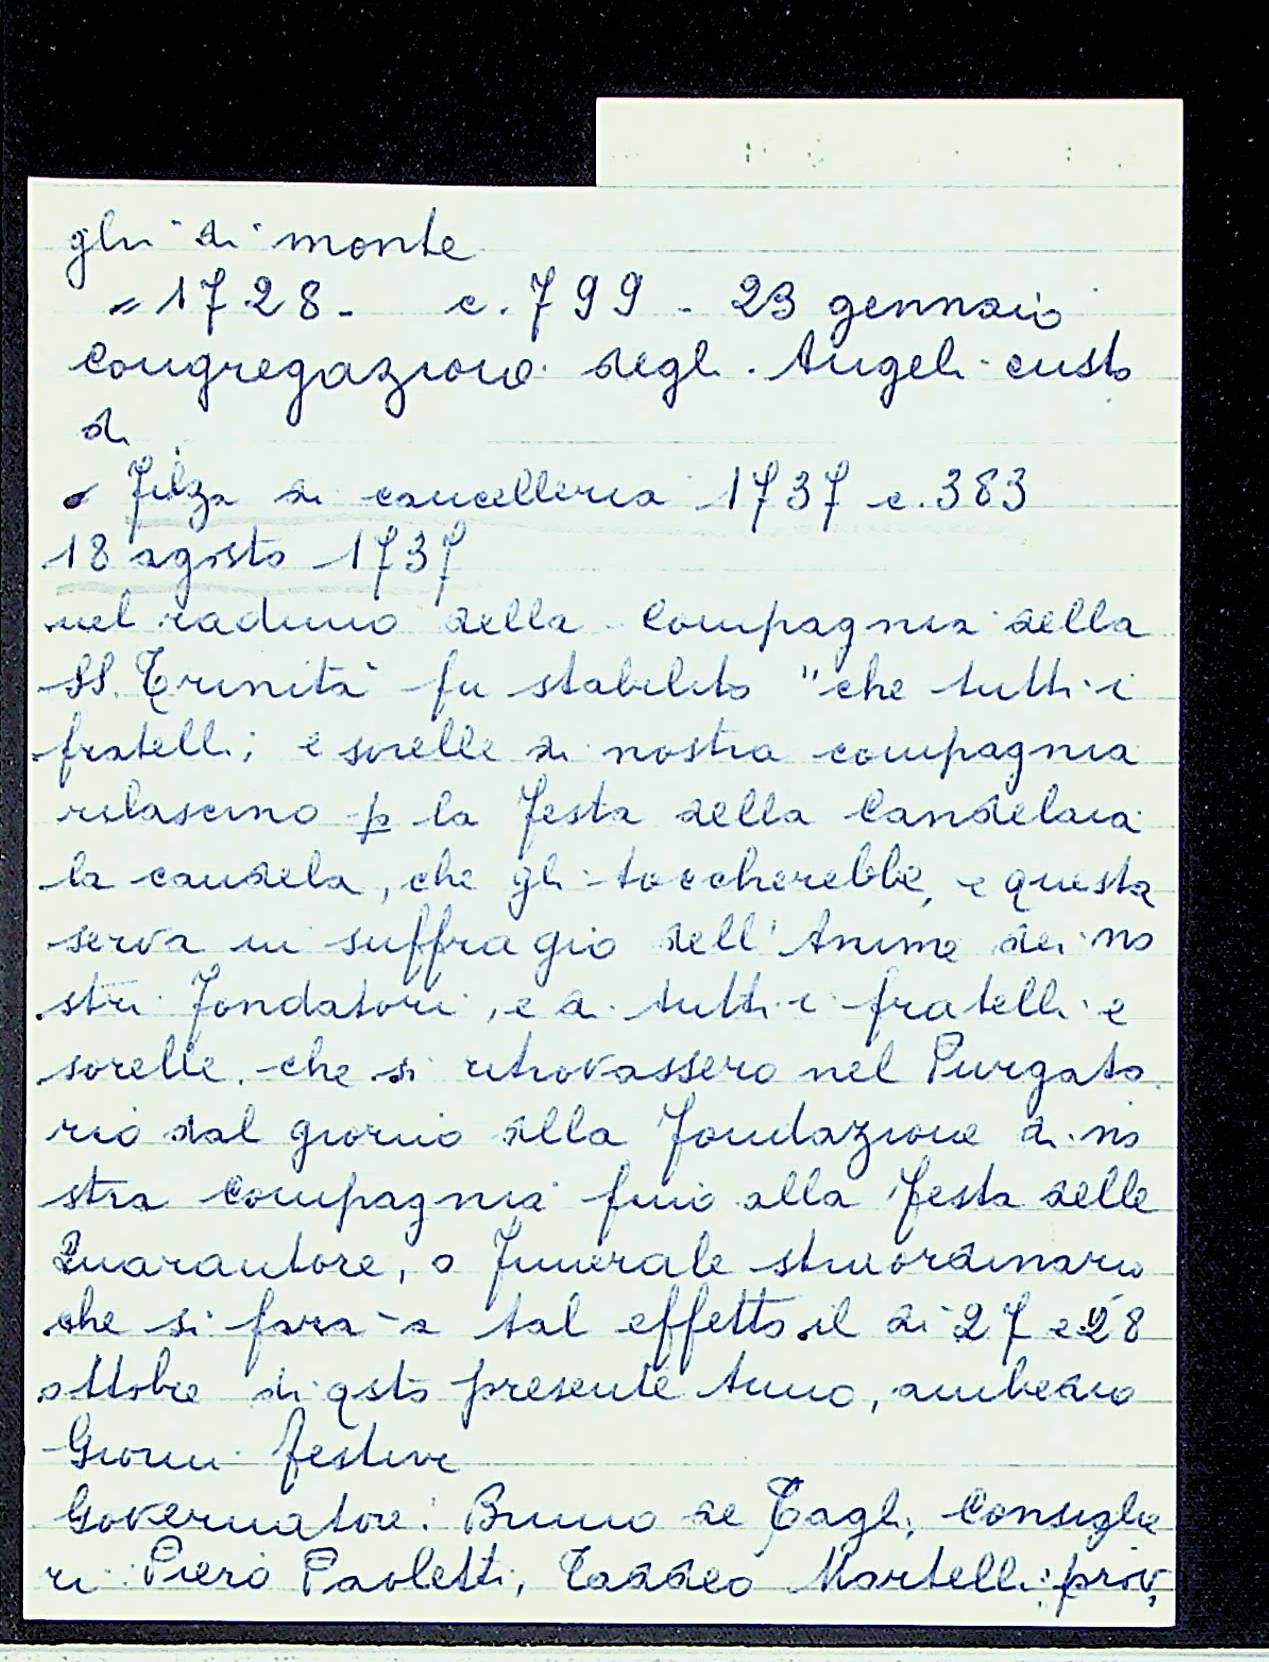 ghi di monte
" 1728 - c. 799 - 23 gennaio
Congregazione degli Angeli custo
di
" Filza di cancelleria 1737 c. 383
18 agosto 1737
nel raduno della Compagnia della
SS. Trinità fu stabilito "che tutti i
fratelli; e sorelle di nostra compagnia
rilascino p la Festa della Candelaia
la candela, che gli toccherebbe, e questa
serva in suffragio dell'Anime dei no
stri Fondatori, e di tutti i fratelli e
sorelle che si ritrovassero nel Purgato
rio dal giorno della Fondazione di no
stra Compagnia fino alla Festa delle
Quarantore, o Funerale straordinario
che si farà a tal effetto il dì 27 e 28
ottobre di qsto presente Anno, ambedio
Giorni festivi
Governatore: Bruno de Cagli, Consiglie
ri: Piero Paoletti, Taddeo Martelli: prov,